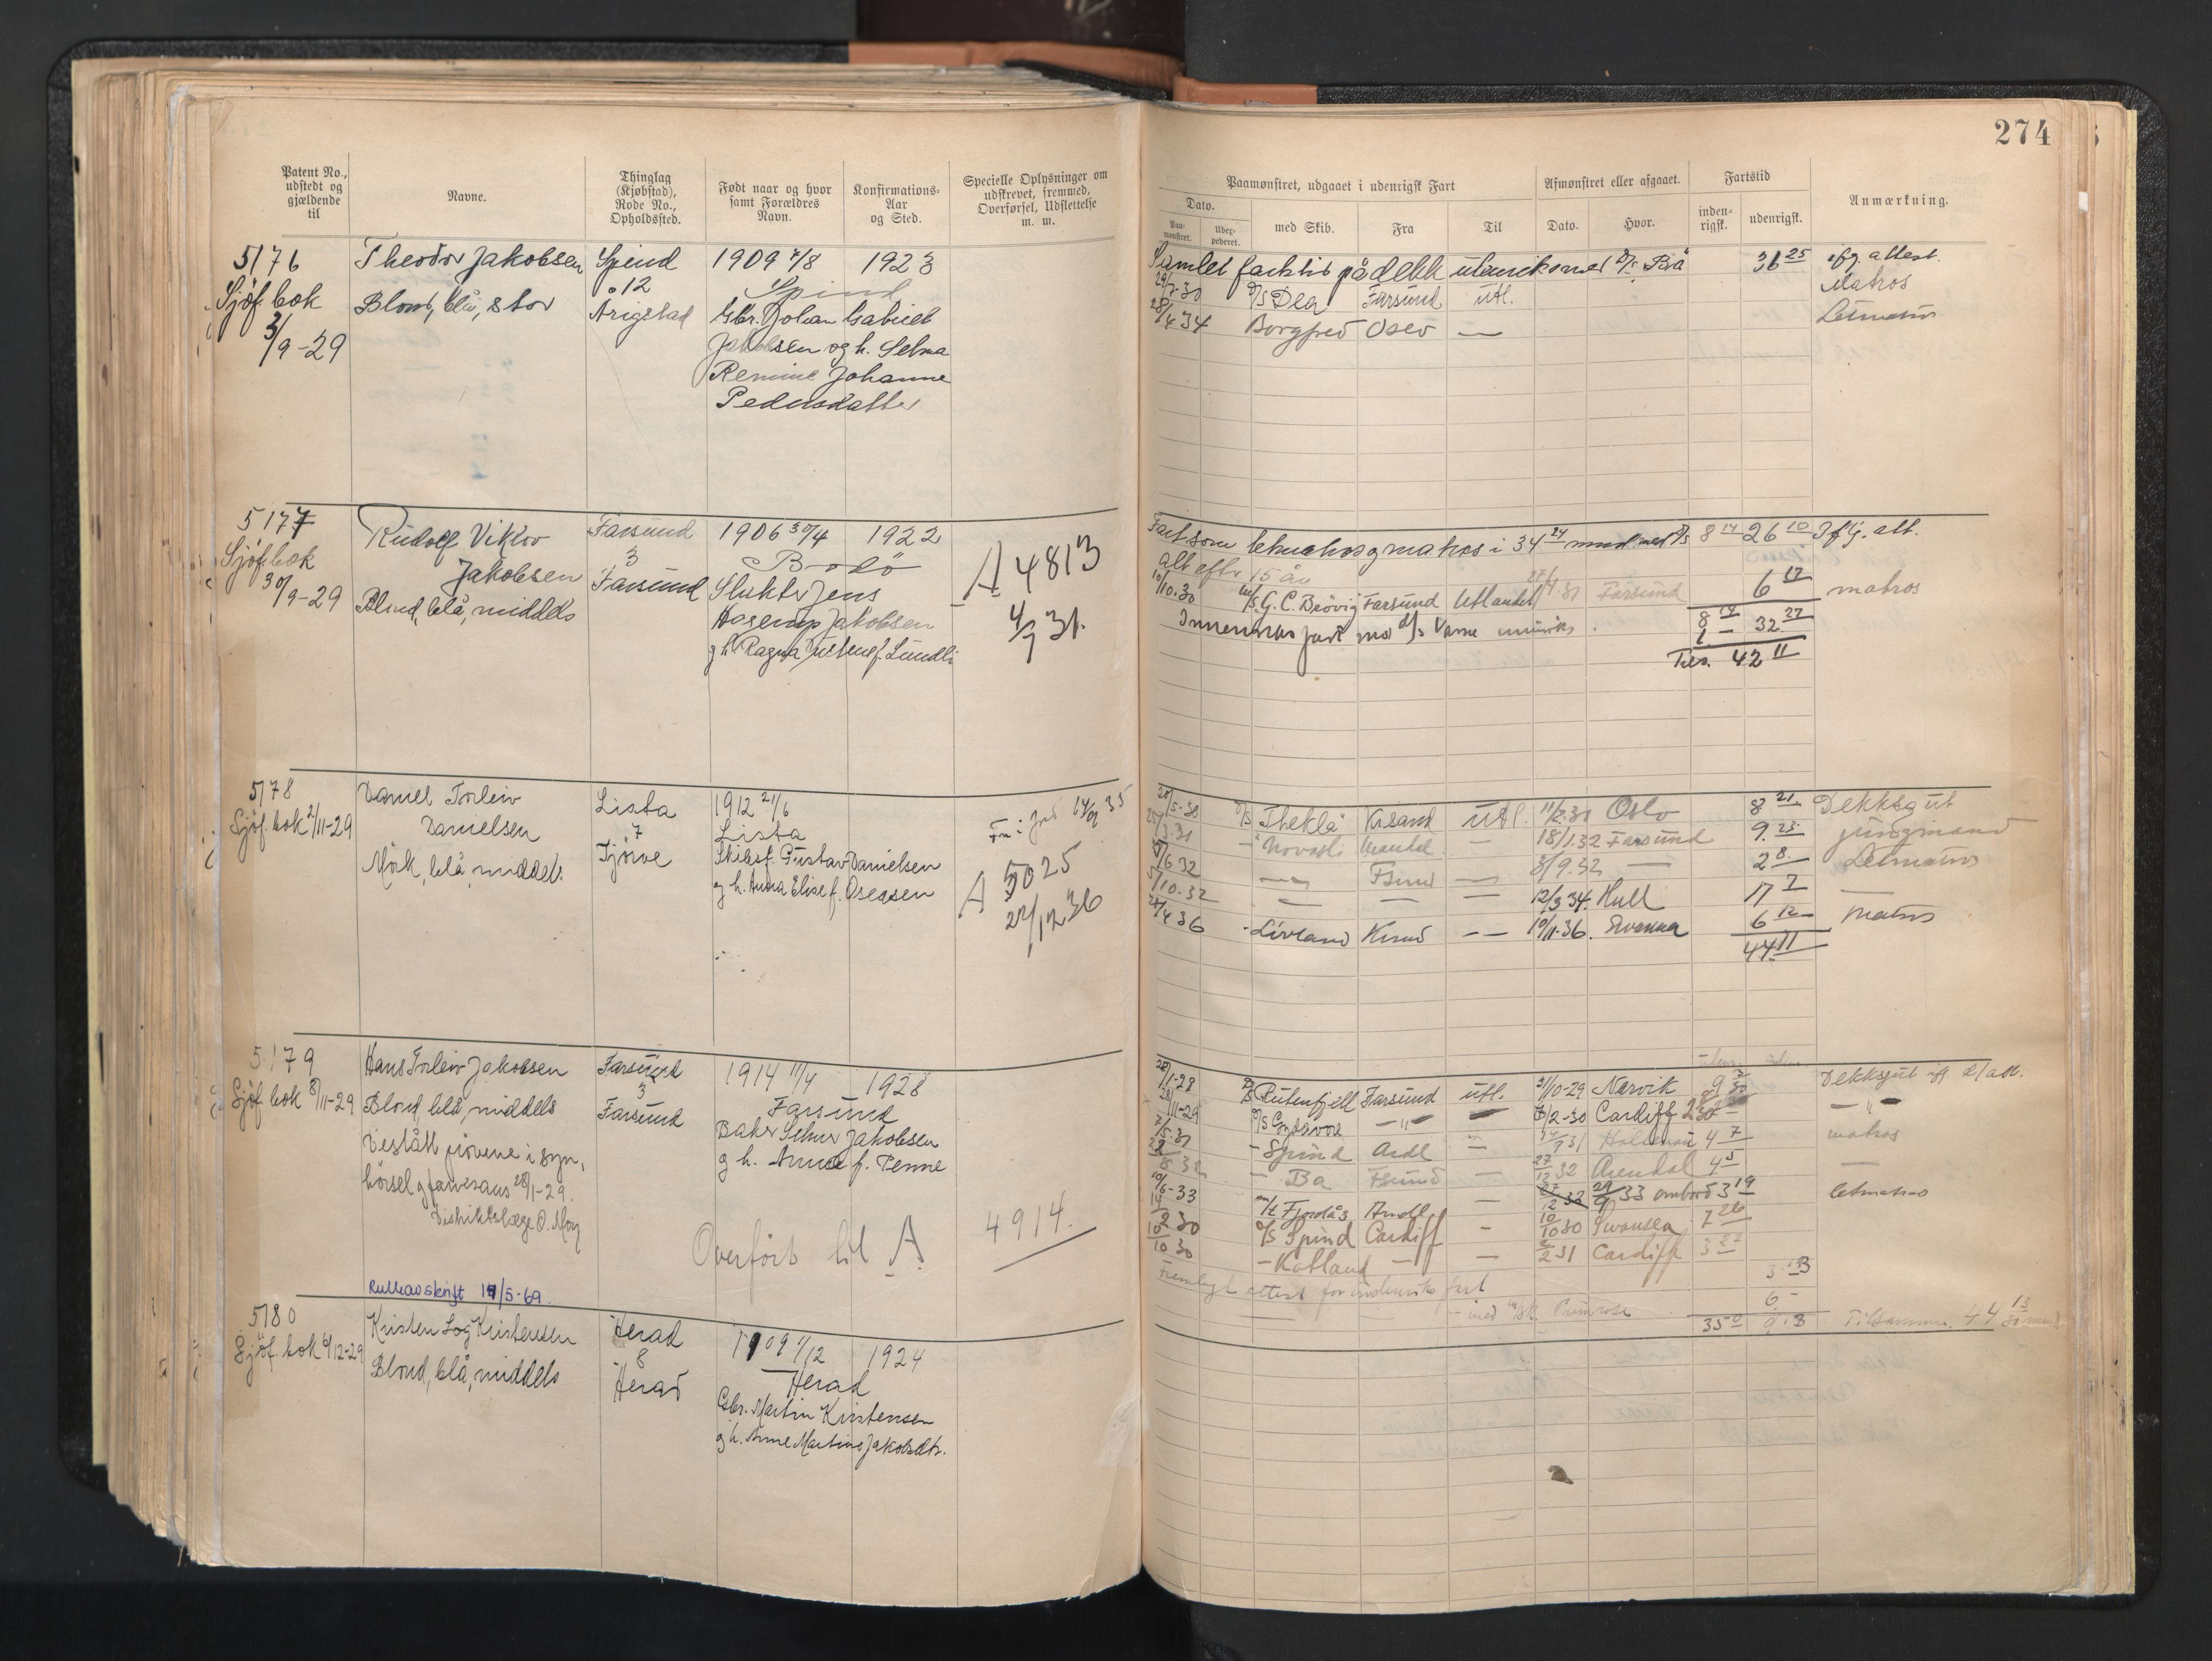 274
Patent No., udstedt og gjældende til
Navne.
Thinglag (Kjøbstad), Rode No., Opholdssted.
Født naar og hvor samt Forældres Navn.
Konfirmations-Aar og Sted.
Specielle Oplysninger om udskrevet, fremmed, Overførsel, Udslettelse m. m.
Paamønstret, udgaaet i udenrigsk Fart
Dato.
Paa-mønstret.
Uder-pederet.
med Skib.
Fra
Til
Afmønstret eller afgaaet.
Dato.
Hvor.
Fartstid
inden-rigsk.
udenrigsk.
Anmærkning.
5176
Sjöf. bok
3/9-29
Theodor Jakobsen
Blond, blå, stor
Spind
12
Arigstad
1909 4/8 1923
Spind
Gbr. Johan Gabriel
Jakobsen og h. Selma
Remine Johanne
Pedersdatter
Samlet farttid på dekk utenriks med D/S Brå 36 25 ifg. attest.
29/7-30 D/S Dea Farsund utl. Matros
28/4 34 Borgfred Oslo — Letmatros
5177
Sjöf. bok
30/9-29
Rudolf Viktor
Jakobsen
Blond, blå, middels
Farsund
3
Farsund
1906 30/4 1922
Bodö
Slakter Jens
Jakobsen
g h. Ragna f. Lundli
A 4813
4/7 31.
Fart som letmatros og matros i 34 24 mnd. med D/S 8 14 26 10 Ifg. att.
alt efter 15 år
10/10.30 m/s G. C. Brövig Farsund Utlandet 27/4 31 Farsund 6 17 matros
8 14 32 27
1 —
Tils. 42 11
5178
Sjöf. bok 2/11-29
Daniel Torleiv
Danielsen
Mörk, blå, middels.
Lista
7
Tjörve
1912 21/6
Lista
Skibsf. Gustav Danielsen
og h. Anna Elise f. Osensen
A 5025
22/12 36
D/S Thekla Krsand utl. 11/2.31 Oslo 8 21 Dekksgut
Mandal — 18/1.32 Farsund 9. 23 jungmand
/6 32 — Fsund — 3/9.32 — 2 8 Letmatros
5/10.32 — — — 12/3 34. Hull 17 7 —
/4 36 - Livland Krsund — 10/11-36. 6 12 matros
44 11
5179
Sjöf. bok 8/11-29
Hans Torleiv Jakobsen
Blond, blå, middels
Bestått prövene i syn,
hörsel og farvesans 28/1-29.
Distriktslæge O. Moy
Farsund
3
Farsund
1914 11/4 1928
Farsund
Baker Selmer Jakobsen
g h. Anna f. Penne
Overfört til A 4914.
Rulleavskrift 19/5-69.
28/1-28 D/S Rutenfjell Farsund utl. 31/10-29 Narvik 9 3 Dekksgut
/11-29 D/S —"— — /2-30 Cardiff —"—
7/5.31 - Spind Ardl — Holmen 4 7 matros
8 32 — Ba Fsund — 27/12 32 Arendal 4 5 —
10/6-33 m/t Fjordås Arndl — 33 ombord 3 19 letmatros
2 30 D/S Spind Cardiff - 10/10 30 Swansea 7 26
10/10 30 — Katland — — 2/2 31 Cardiff 3 22
Fremlagt attest for innenriks fart
— — — med Primrose
35 0 9.13 Tilsammen 44 13
5180
Sjöf. bok 6/12-29
Kristen Log Kristensen
Blond, blå, middels
Herad
8
Herad
1909 1/12 1924
Herad
Gbr. Martin Kristensen
g h. Anne Martine Jakobsdtr.